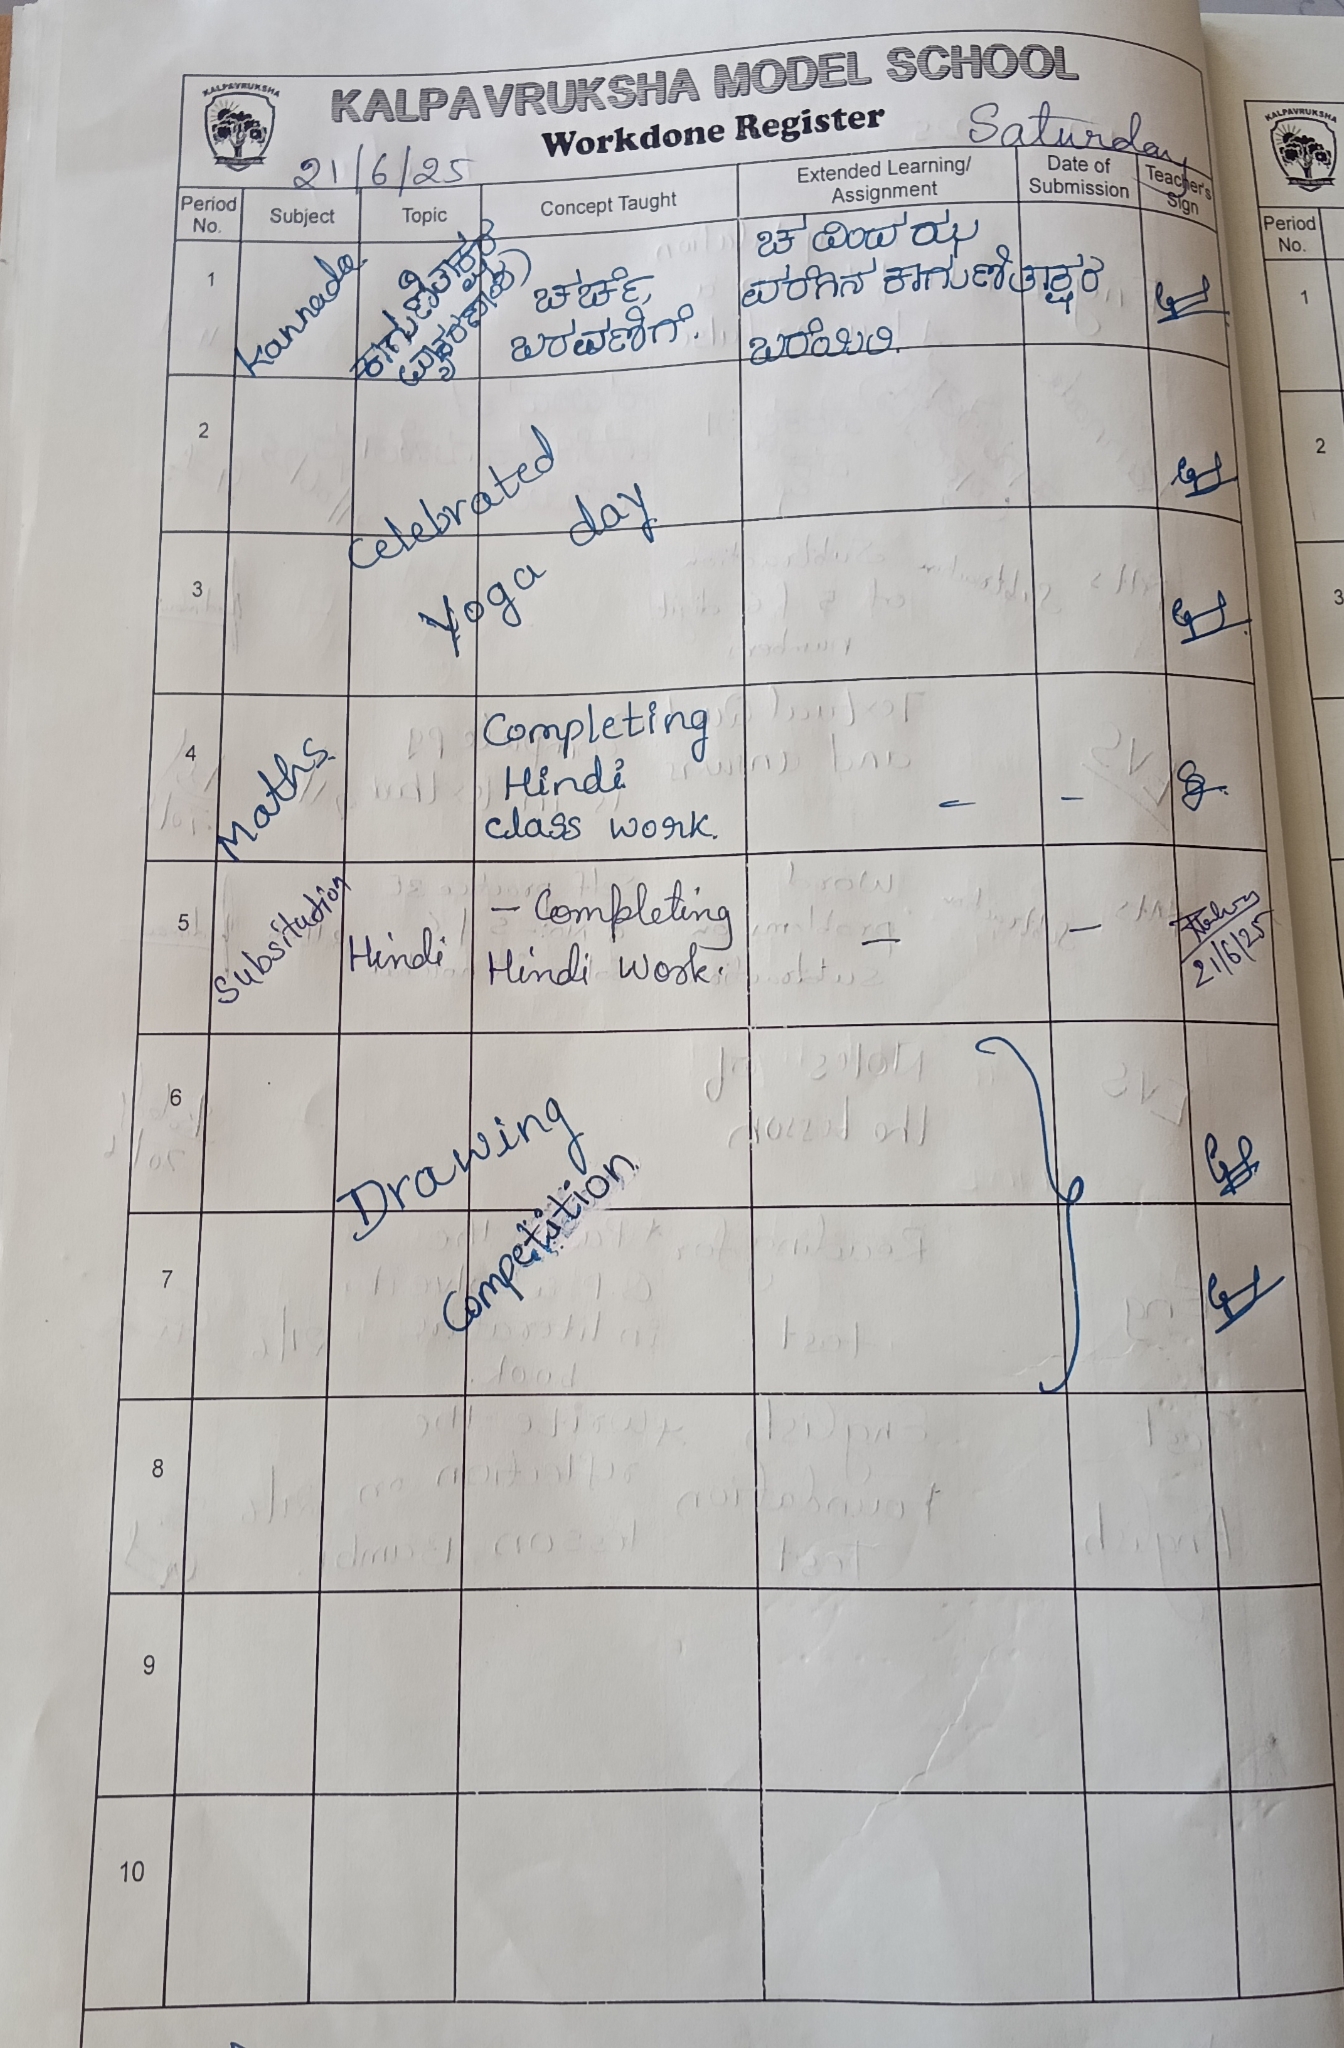 KALPAVRUKSHA
KALPAVRUKSHA MODEL SCHOOL
Workdone Register
21/6/25
Saturday
Period No.
Subject
Topic
Concept Taught
Extended Learning/
Assignment
Date of
Submission
Teacher's
Sign
1
Kannada
ಕಾಗುಣಿತಾಕ್ಷರ
ಚರ್ಚೆ,
ಬರವಣಿಗೆ.
ಚ ದಿಂದ ಝ
ವರೆಗಿನ ಕಾಗುಣಿತಾಕ್ಷರ
ಬರೆಯಿರಿ.
2
Celebrated
Yoga day
3
4
Maths.
Completing
Hindi
class work.
-
-
5
Subsitution
Hindi
- Completing
Hindi work.
-
-
21/6/25
6
Drawing
Competition
7
8
9
10
KALPAVRUKSHA
Period
No.
1
2
3